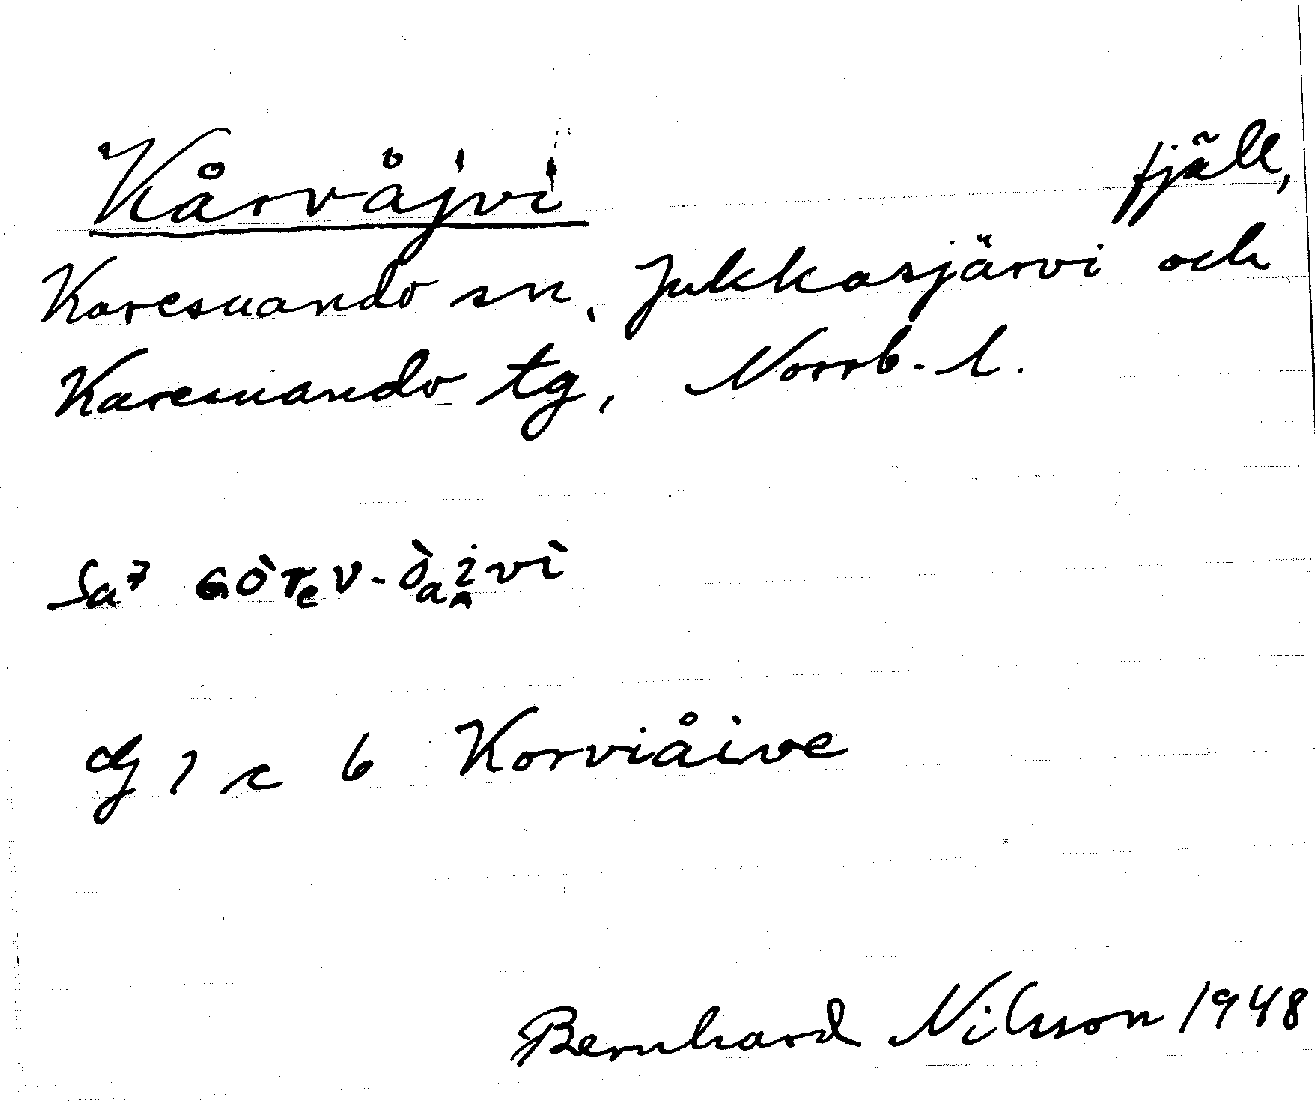 Kårvåjvi fjäll,
Karesuando sn, Jukkasjärvi och
Karesuando tg, Norrb. l.
Sa7 GÒTeV-òaivì
Gg 1 c 6 Korviåive
Bernhard Nilsson 1948